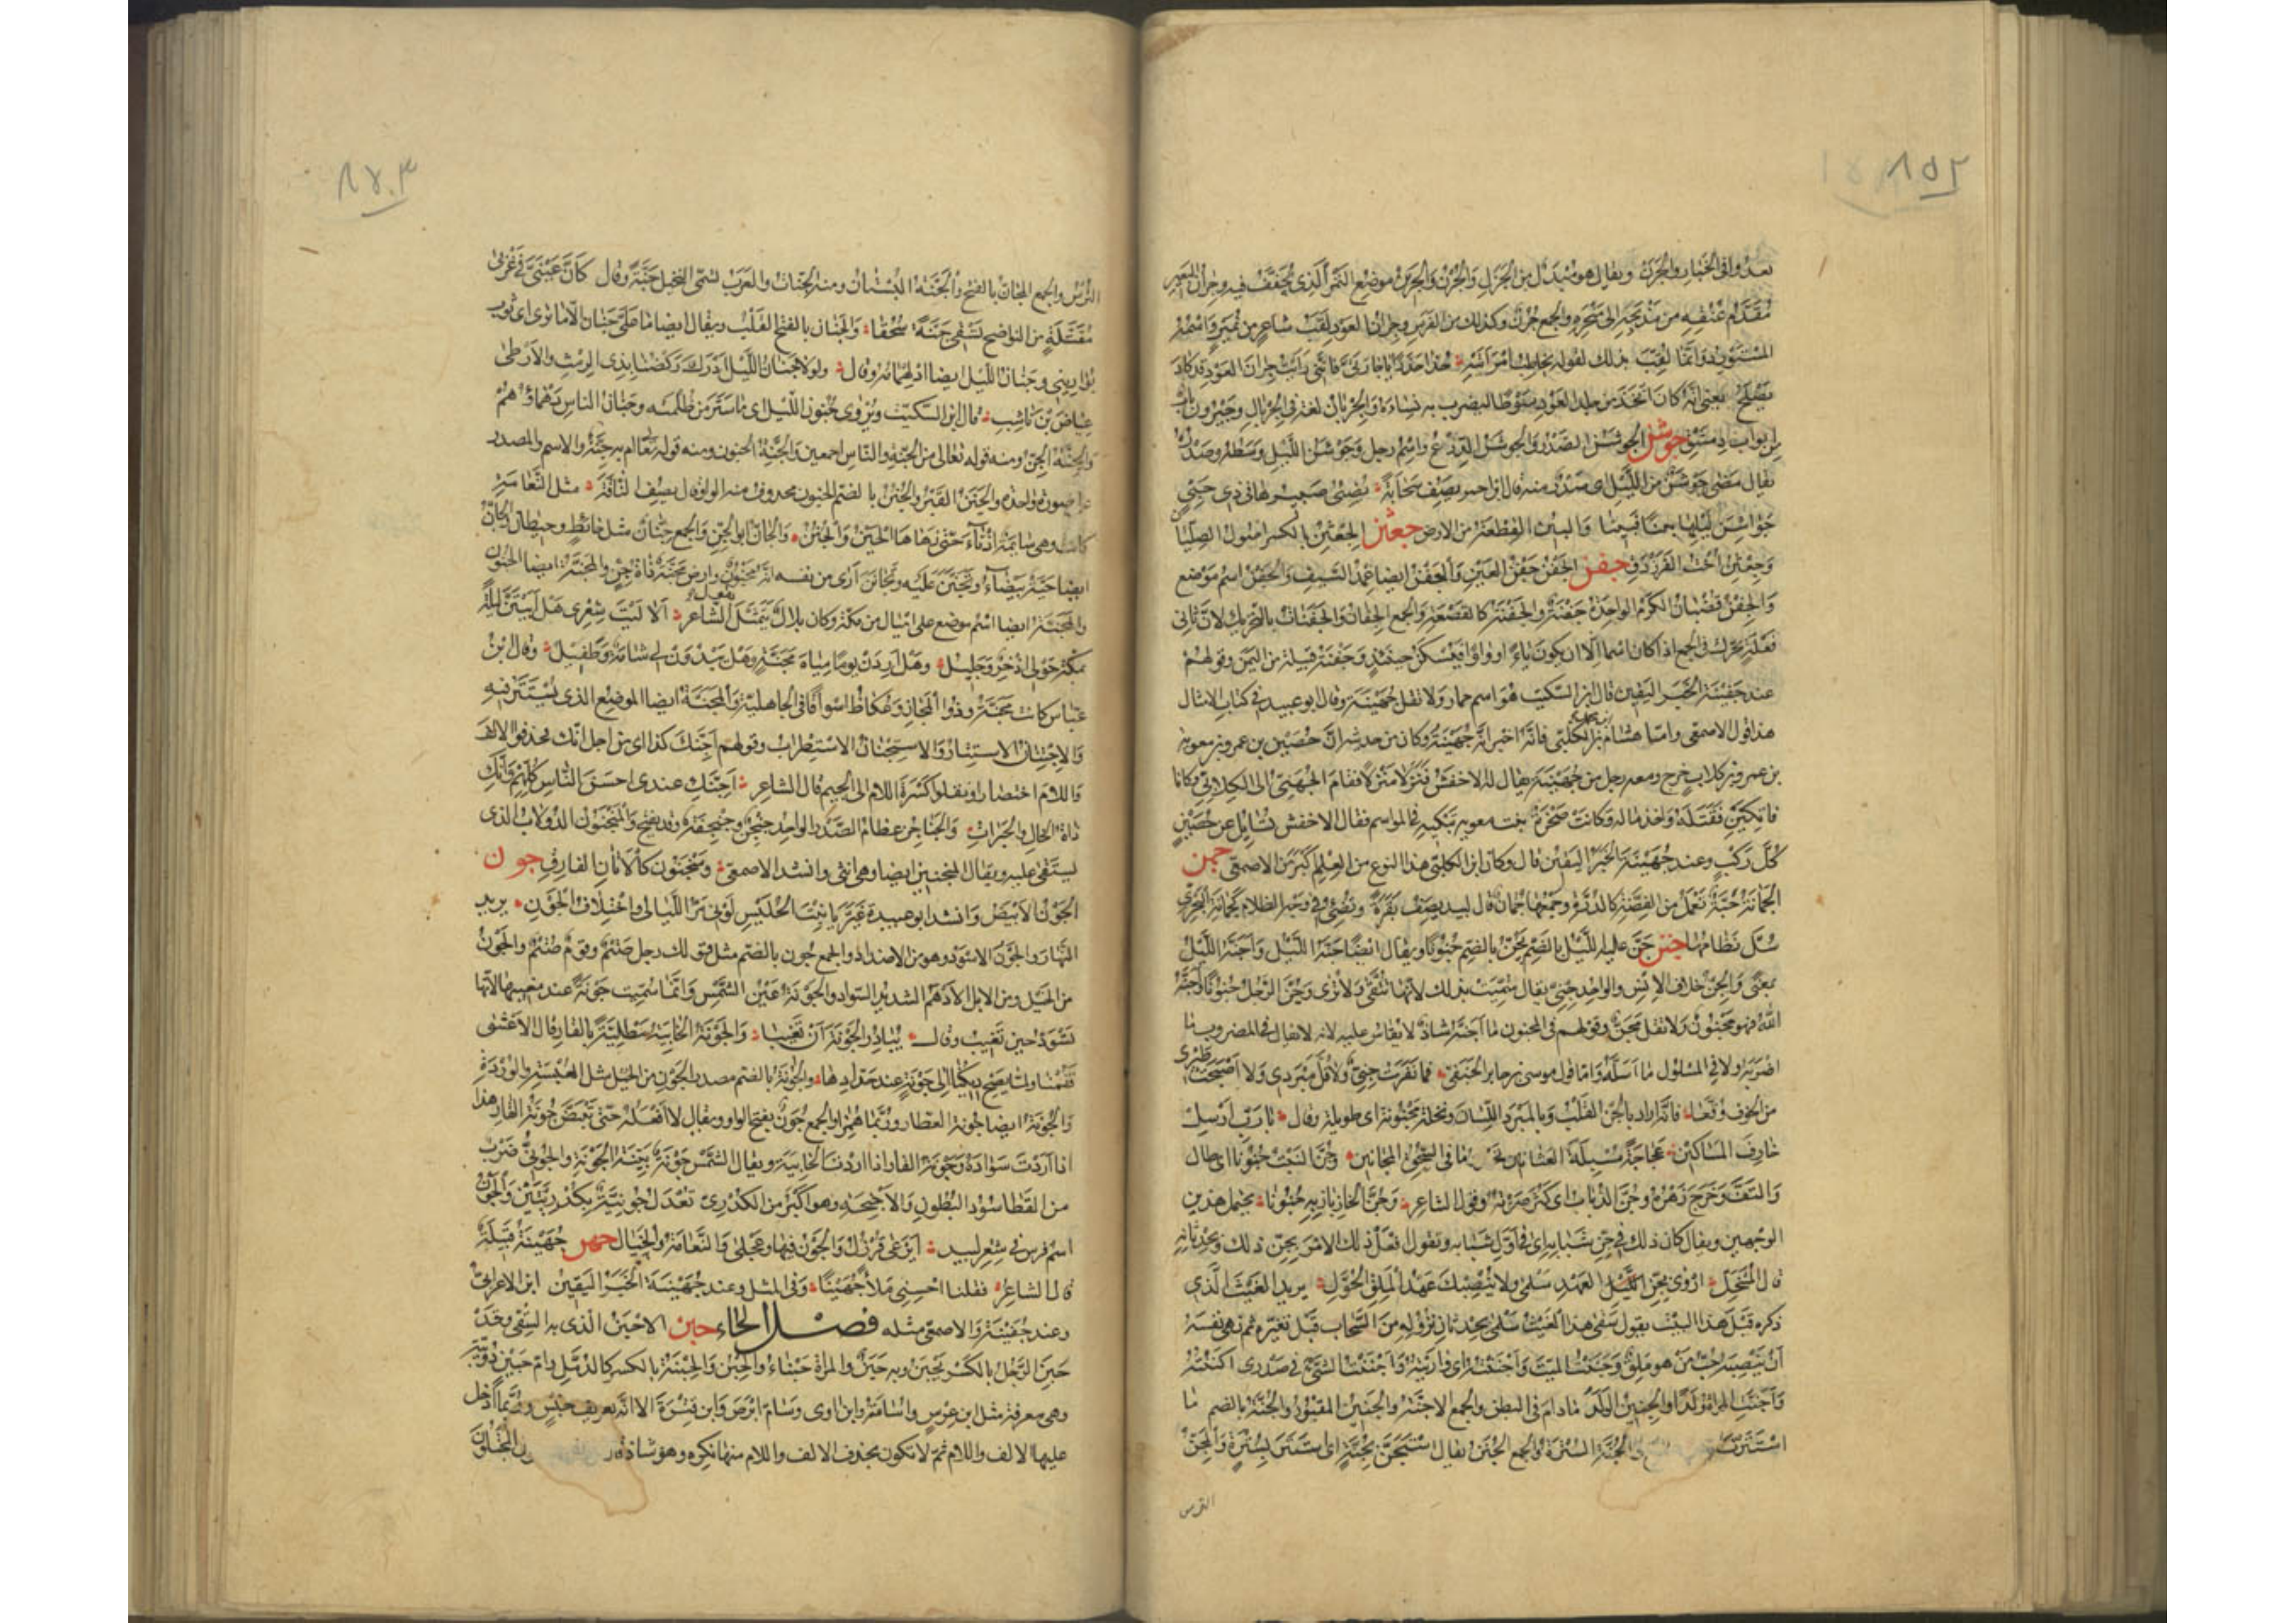 ٨٥٢
تعدوا في الخبار والجرن ويقال هو مبدل من الجرل والجرن والجرين موضع التمر الذي يجفف فيه وجران البعير
مقدم عنقه من مذبحه الى منحره والجمع جرن وكذلك من الفرس وجران العود لقب شاعر من نمير واسمه
المستورد وانما لقب بذلك لقوله يخاطب امرأتيه خذا حذرا يا جارتي فانني رأيت جران العود قد كاد
يصلح يعني انه كان اتخذ من جلد العود سوطا ليضرب به نساءه والجريان لغة في الجريال وجيرون باب
من ابواب دمشق جوشن الجوشن الصدر والجوشن الدرع واسم رجل وجوشن الليل وسطه وصدره
يقال مضى جوشن من الليل اى صدر منه قال ابن احمر يصف سحابة يضئ صبيرها في ذى حبي
جواشن ليلها بينا فبينا والبين القطعة من الارض جعثن الجعثن بالكسر اصول الصليان
وجعثن اخت الفرزدق جفن الجفن جفن العين والجفن ايضا غمد السيف والجفن اسم موضع
والجفن قضبان الكرم الواحدة جفنة والجفنة كالقصعة والجمع الجفان والجفنات بالتحريك لان ثانى
فعلة يحرك في الجمع اذا كان اسما الا ان يكون ياء او واوا فيسكن حينئذ وجفنة قبيلة من اليمن وقولهم
عند جفينة الخبر اليقين قال ابن السكيت هو اسم خمار ولا تقل جهينة وقال ابو عبيد في كتاب الامثال
هذا قول الاصمعى واما هشام بن الكلبى فانه اخبر انه جهينة وكان من حديثه ان حصين بن عمرو بن معوية
بن عمرو بن كلاب خرج ومعه رجل من جهينة يقال له الاخفش فنزلا منزلا فقام الجهنى الى الكلابي وكانا
فاتكين فقتله واخذ ماله وكانت صخرة بنت معوية تبكيه في المواسم فقال الاخفش تسايل عن حصين
كل ركب وعند جهينة الخبر اليقين قال وكان ابن الكلبى هذا النوع من العلم اكبر من الاصمعى جمن
الجمانة حبة تعمل من الفضة كالدرة وجمعها جمان قال لبيد يصف بقرة وتضئ في وجه الظلام كجمانة البحرى
سل نظامها جنن جن عليه الليل بالضم يجن بالضم جنونا ويقال ايضا جنه الليل واجنه الليل
بمعنى والجن خلاف الانس والواحد جنى يقال سميت بذلك لانها تتقى ولا ترى وجن الرجل جنونا واجنه
الله فهو مجنون ولا تقل مجن وقولهم في المجنون ما اجنه شاذ لا يقاس عليه لانه لا يقال في المضروب ما
اضربه ولا في المسلول ما اسله واما قول موسى بن جابر الحنفى فما نفرت جنى ولا فل مبردى ولا اصبحت طيرى
من الخوف وقعا فانه اراد بالجن القلب وبالمبرد اللسان ونخلة مجنونة اى طويلة وقال يا رب ارسل
خارف المساكين عجاجة مسبلة العثانين تحدر ما في السحق المجانين وجن النبت جنونا اى طال
والتف وخرج زهره وجن الذباب اى كثر صوته وقول الشاعر وجن الخازباز به جنونا يحتمل هذين
الوجهين ويقال كان ذلك في جن شبابه اى في اول شبابه وتقول افعل ذلك الامر بجن ذلك وبحدثانه
قال المتنخل اروى بجن العهد سلمى ولا ينصبك عهد الملق الحول يريد الغيث الذي
ذكره قبل هذا البيت يقول سقى هذا الغيث سلمى بحدثان نزوله من السحاب قبل تغيره ثم نهى نفسه
ان ينصبه حب من هو ملق وجننت الميت واجننته اى واريته واجننت الشئ في صدرى اكننته
واجنت المرأة ولدا والجنين الولد ما دام في البطن والجمع الاجنة والجنين المقبور والجنة بالضم ما
استترت والجنة السترة والجمع الجنن يقال استجن بجنة اى استتر بسترة والمجن
الترس
٨٥٣
الترس والجمع المجان بالفتح والجنة البستان ومنه الجنات والعرب تسمى النخيل جنة وقال كأن عينى في غربى
مقتلة من النواضح تسقى جنة سحقا والجنان بالفتح القلب ويقال ايضا ما على جنان الا ما ترى اى ثوب
يوارينى وجنان الليل ايضا ادلهمامه وقال ولولا جنان الليل ادرك ركضنا بذى الرمث والارطى
عياض بن ناشب قال ابن السكيت ويروى جنون الليل اى ما ستر من ظلمته وجنان الناس دهماؤهم
والجنة الجن ومنه قوله تعالى من الجنة والناس اجمعين والجنة الجنون ومنه قوله تعالى ام به جنة والاسم والمصدر
على صورة واحدة والجنن القبر والجنن بالضم الجنون محذوف منه الواو قال يصف الناقة مثل النعامة
كانت وهى سائمة اذناء حتى زهاها الحين والجنن والجان ابو الجن والجمع جنان مثل غائط وحيطان والجان
ايضا حية بيضاء وتجنن عليه وتجانن ارى من نفسه انه مجنون وارض مجنة ذات جن والمجنة ايضا الجنون
والمجنة ايضا اسم موضع على اميال من مكة وكان بلال يتمثل بقول الشاعر الا ليت شعرى هل ابيتن ليلة
بمكة حولى اذخر وجليل وهل اردن يوما مياه مجنة وهل يبدون لى شامة وطفيل وقال ابن
عباس كانت مجنة وذو المجاز وعكاظ اسواقا في الجاهلية والمجنة ايضا الموضع الذى يستتر فيه
والاجتنان الاستتار والاستجنان الاستطراب وقولهم اجنك كذا اى من اجل انك فحذفوا الالف
واللام اختصارا ونقلوا كسرة اللام الى الجيم قال الشاعر اجنك عندى احسن الناس كلهم وانك
ذات الخال والحبرات والجناجن عظام الصدر الواحد جنجن وجنجنة وقد يفتح والمنجنون الدولاب الذى
يستقى عليه ويقال المنجنين ايضا وهى انثى وانشد الاصمعى ومنجنون كالاتان الفارق جون
الجون الابيض وانشد ابو عبيدة غير يا بنت الحليس لونى مر الليالى واختلاف الجون يريد
النهار والجون الاسود وهو من الاضداد والجمع جون بالضم مثل قولك رجل صتم وقوم صتم والجون
من الخيل ومن الابل الادهم الشديد السواد والجونة عين الشمس وانما سميت جونة عند مغيبها لانها
تسود حين تغيب وقال يبادر الجونة ان تغيبا والجونة الخابية مطلية بالقار قال الاعشى
فقمنا ولما يصح ديكنا الى جونة عند حدادها والجونة بالضم مصدر الجون من الخيل مثل الغبسة والوردة
والجونة ايضا جونة العطار وربما همز والجمع جون بفتح الواو ويقال لا افعله حتى تبيض جونة القار هذا
اذا اردت سواده وجونة القار اذا اردت الخابية ويقال الشمس جونة بينة الجونة والجونى ضرب
من القطا سود البطون والاجنحة وهو اكبر من الكدرى تعدل جونية بكدريتين والجون
اسم فرس في شعر لبيد اين على قرزل والجون فيها وعجلى والنعامة والخيال جهن جهينة قبيلة
قال الشاعر فقلنا احسنى ملا جهينا وفي المثل وعند جهينة الخبر اليقين ابن الاعرابى
وعند جفينة والاصمعى مثله فصل الحاء حبن الاحبن الذى به السقى وقد
حبن الرجل بالكسر يحبن وبه حبن والمرأة حبناء والحبن والحبنة بالكسر كالدمل وام حبين دويبة
وهى معرفة مثل ابن عرس واسامة وابن اوى وسام ابرص وابن قترة الا انه تعريف جنس وربما ادخل
عليها الالف واللام ثم لا تكون بحذف الالف واللام منها نكرة وهو شاذ